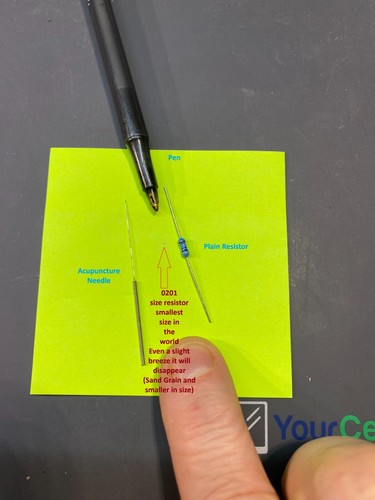 Pen
Plain Resistor
Acupuncture
Needle
0201
size resistor
smallest
size in
the
world
Even a slight
breeze it will
disappear
(Sand Grain and
smaller in size)
YourCe